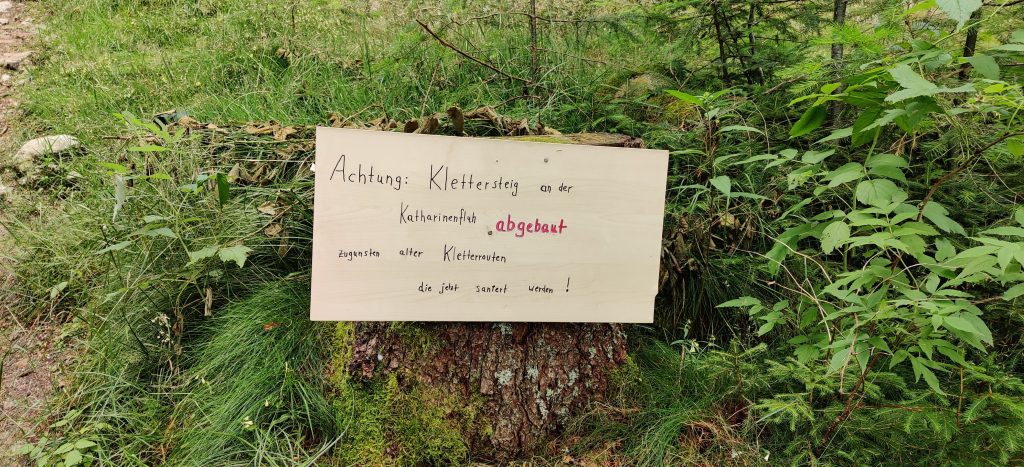 Achtung: Klettersteig an der
Katharinenfluh abgebaut
zugunsten alter Kletterrouten
die jetzt saniert werden !